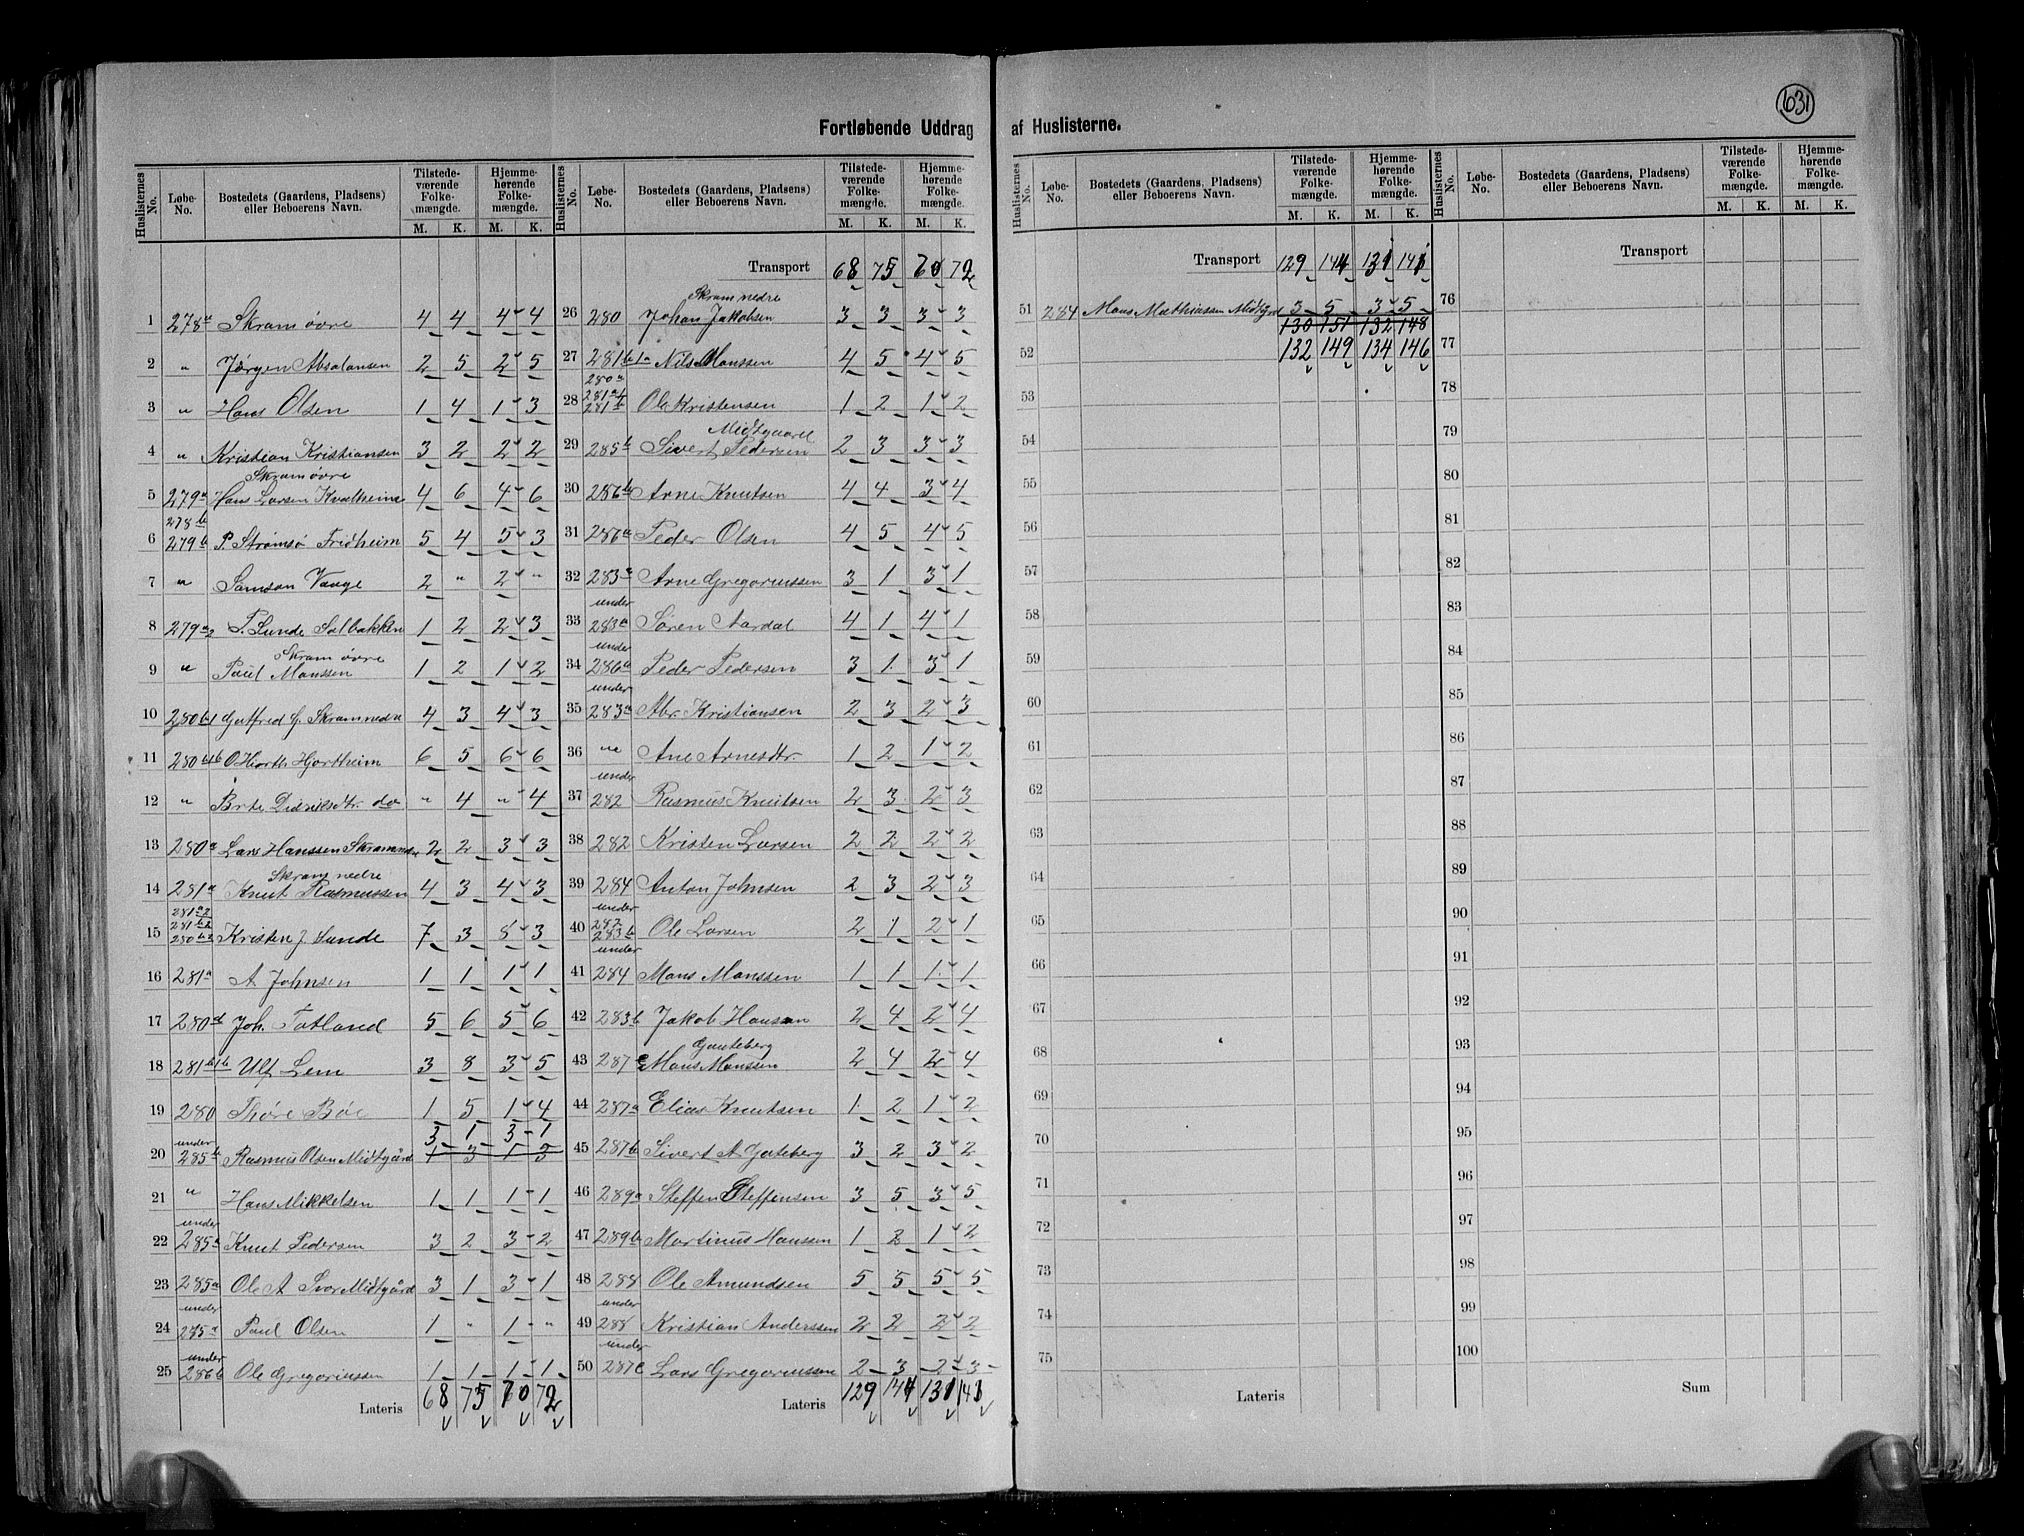 631
Fortløbende Uddrag af Huslisterne.
Huslisternes No. Løbe-No. Bostedets (Gaardens, Pladsens) eller Beboerens Navn. Tilstedeværende Folkemængde. Hjemmehørende Folkemængde.
M. K. M. K.
1 278a Skram övre 4 4 4 4
2 " Jörgen Absalonsen 2 5 2 5
3 " Hans Olsen 1 4 1 3
4 " Kristian Kristiansen 3 2 2 2
Skram övre
5 279a Hans Larsen Kvalheim 4 6 4 6
278b
6 279b P. Strømsø Fridheim 5 4 5 3
7 " Samson Vaage 2 " 2 "
8 279a2 P. Lunde Solbakken 1 2 2 3
Skram övre
9 " Paul Monssen 1 2 1 2
10 280b1 Gutfred G. Skramnedre 4 3 4 3
11 280b1b O Hiorth Hjortheim 6 5 6 6
12 " Brte Didriksdtr. do " 4 " 4
13 280a Lars Hanssen Skramnedre 2 2 3 3
Skram nedre
14 281a Knut Rasmussen 4 3 4 3
281a2
281b2
15 280b2 Kristen J. Lunde 7 3 5 3
16 281a A Johnsen 1 1 1 1
17 280d Joh. Totland 5 6 5 6
18 281b1b Ulf Lem 3 8 3 5
19 280 Thöre Böe 1 5 1 4
3 1 3 1
under
20 285b Rasmus Olsen Midtgård 1 3 1 3
21 " Hans Mikkelsen 1 1 1 1
under
22 285a Knut Pedersen 3 2 3 2
23 285a Ole A Ivar Midtgård 3 1 3 1
under
24 285a Paul Olsen 1 " 1 "
under
25 286b Ole Gregoriussen 1 1 1 1
Lateris 68 75 70 72
Huslisternes No. Løbe-No. Bostedets (Gaardens, Pladsens) eller Beboerens Navn. Tilstedeværende Folkemængde. Hjemmehørende Folkemængde.
M. K. M. K.
Transport 68 75 70 72
Skram nedre
26 280 Johan Jakobsen 3 3 3 3
27 281b1a Nils Monssen 4 5 4 5
280a
281a1
28 281b Ole Kristensen 1 2 1 2
Midtgaard
29 285b Sivert Pedersen 2 3 3 3
30 286b Arne Knutsen 4 4 3 4
31 286a Peder Olsen 4 5 4 5
32 283a Arne Gregoriussen 3 1 3 1
under
33 283a Sören Aardal 4 1 4 1
under
34 286a Peder Pedersen 3 1 3 1
under
35 283a Abr. Kristiansen 2 3 2 3
36 " Ane Arnesdtr. 1 2 1 2
under
37 282 Rasmus Knutsen 2 3 2 3
38 282 Kristen Larsen 2 2 2 2
39 284 Anton Johnsen 2 3 2 3
under
282
40 283b Ole Larsen 2 1 2 1
under
41 284 Mons Monssen 1 1 1 1
42 283b Jakob Hanssen 2 4 2 4
Gauteberg
43 287c Mons Monssen 2 4 2 4
44 287a Elias Knutsen 1 2 1 2
45 287b Sivert A Gauteberg 3 2 3 2
46 289a Steffen Steffensen 3 5 3 5
47 289b Martinus Hanssen 1 2 1 2
48 288 Ole Amundsen 5 5 5 5
under
49 288 Kristian Anderssen 2 2 2 2
under
50 287c Lars Gregoriussen 2 3 2 3
Lateris 129 144 131 141
Huslisternes No. Løbe-No. Bostedets (Gaardens, Pladsens) eller Beboerens Navn. Tilstedeværende Folkemængde. Hjemmehørende Folkemængde.
M. K. M. K.
Transport 129 144 131 141
51 284 Mons Mathiassen Midtgrd 3 5 3 5
130 151 132 148
52 132 149 134 146
53
54
55
56
57
58
59
60
61
62
63
64
65
66
67
68
69
70
71
72
73
74
75
Lateris
Huslisternes No. Løbe-No. Bostedets (Gaardens, Pladsens) eller Beboerens Navn. Tilstedeværende Folkemængde. Hjemmehørende Folkemængde.
M. K. M. K.
Transport
76
77
78
79
80
81
82
83
84
85
86
87
88
89
90
91
92
93
94
95
96
97
98
99
100
Sum